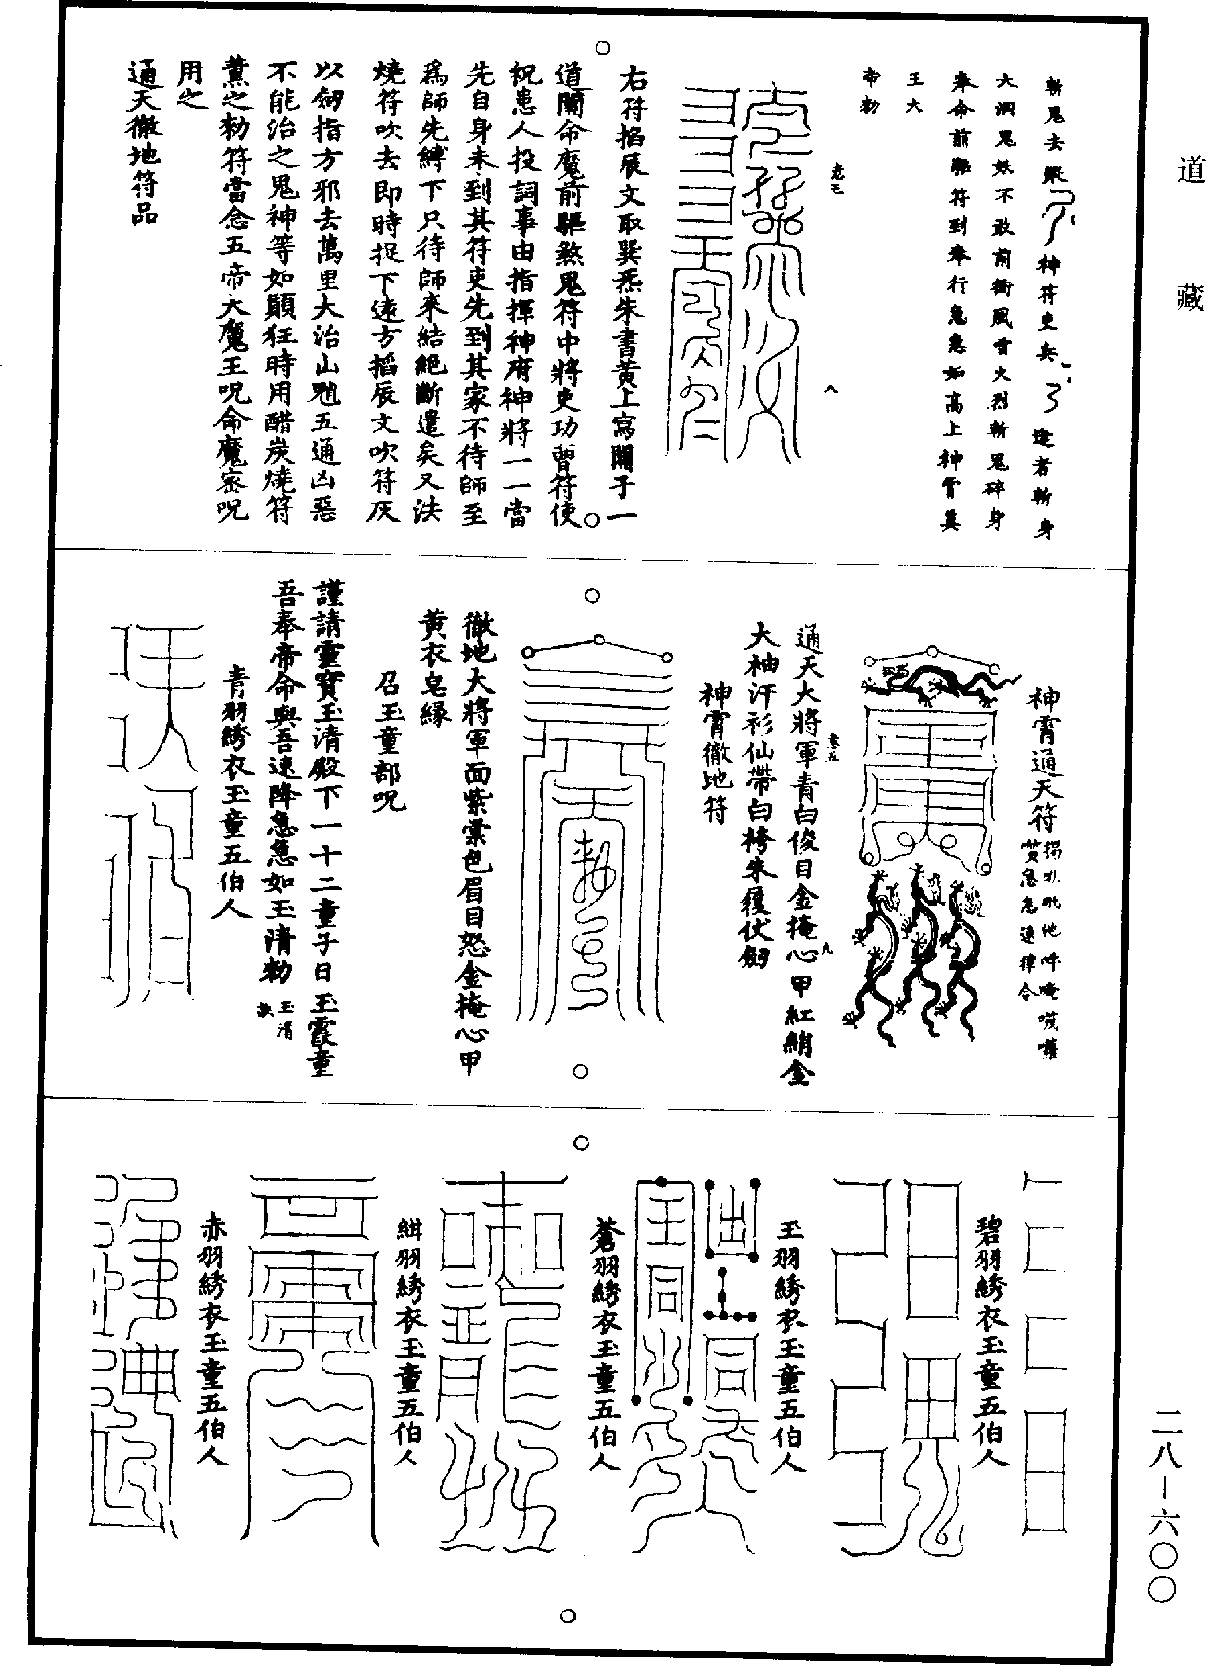 道藏
斬鬼去
神符吏兵
違者斬身
大洞鬼妖不敢前衝風雷火烈斬鬼碎身
奉命前驅符到奉行急急如高上神霄真
王大
帝勑
八
右符掐辰文取巽炁朱書黃上寫開子一
道關命魔前驅煞鬼符中將吏功曹符使
祝患人投詞事由指揮神府神將一一當
先自身未到其符吏先到其家不待師至
爲師先縛下只待師來結絕斷遣矣又法
燒符吹去即時捉下遠方掐辰文吹符灰
以劒指方邪去萬里大治山魈五通凶惡
不能治之鬼神等如顛狂時用醋炭燒符
薰之勑符當念五帝大魔王呪命魔密呪
用之
通天徹地符品
神霄通天符
急急速律令
通天大將軍青白俊目金掩心甲紅綃金
大袖汗衫仙帶白袴朱履仗劒
九
神霄徹地符
徹地大將軍面紫棠色眉目怒金掩心甲
黃衣皂緣
召玉童部呪
謹請靈寶玉清殿下一十二童子日玉霞童
吾奉帝命與吾速降急急如玉清勑玉清
青羽綉衣玉童五伯人
碧羽綉衣玉童五伯人
玉羽綉衣玉童五伯人
蒼羽綉衣玉童五伯人
紺羽綉衣玉童五伯人
赤羽綉衣玉童五伯人
二八—六〇〇